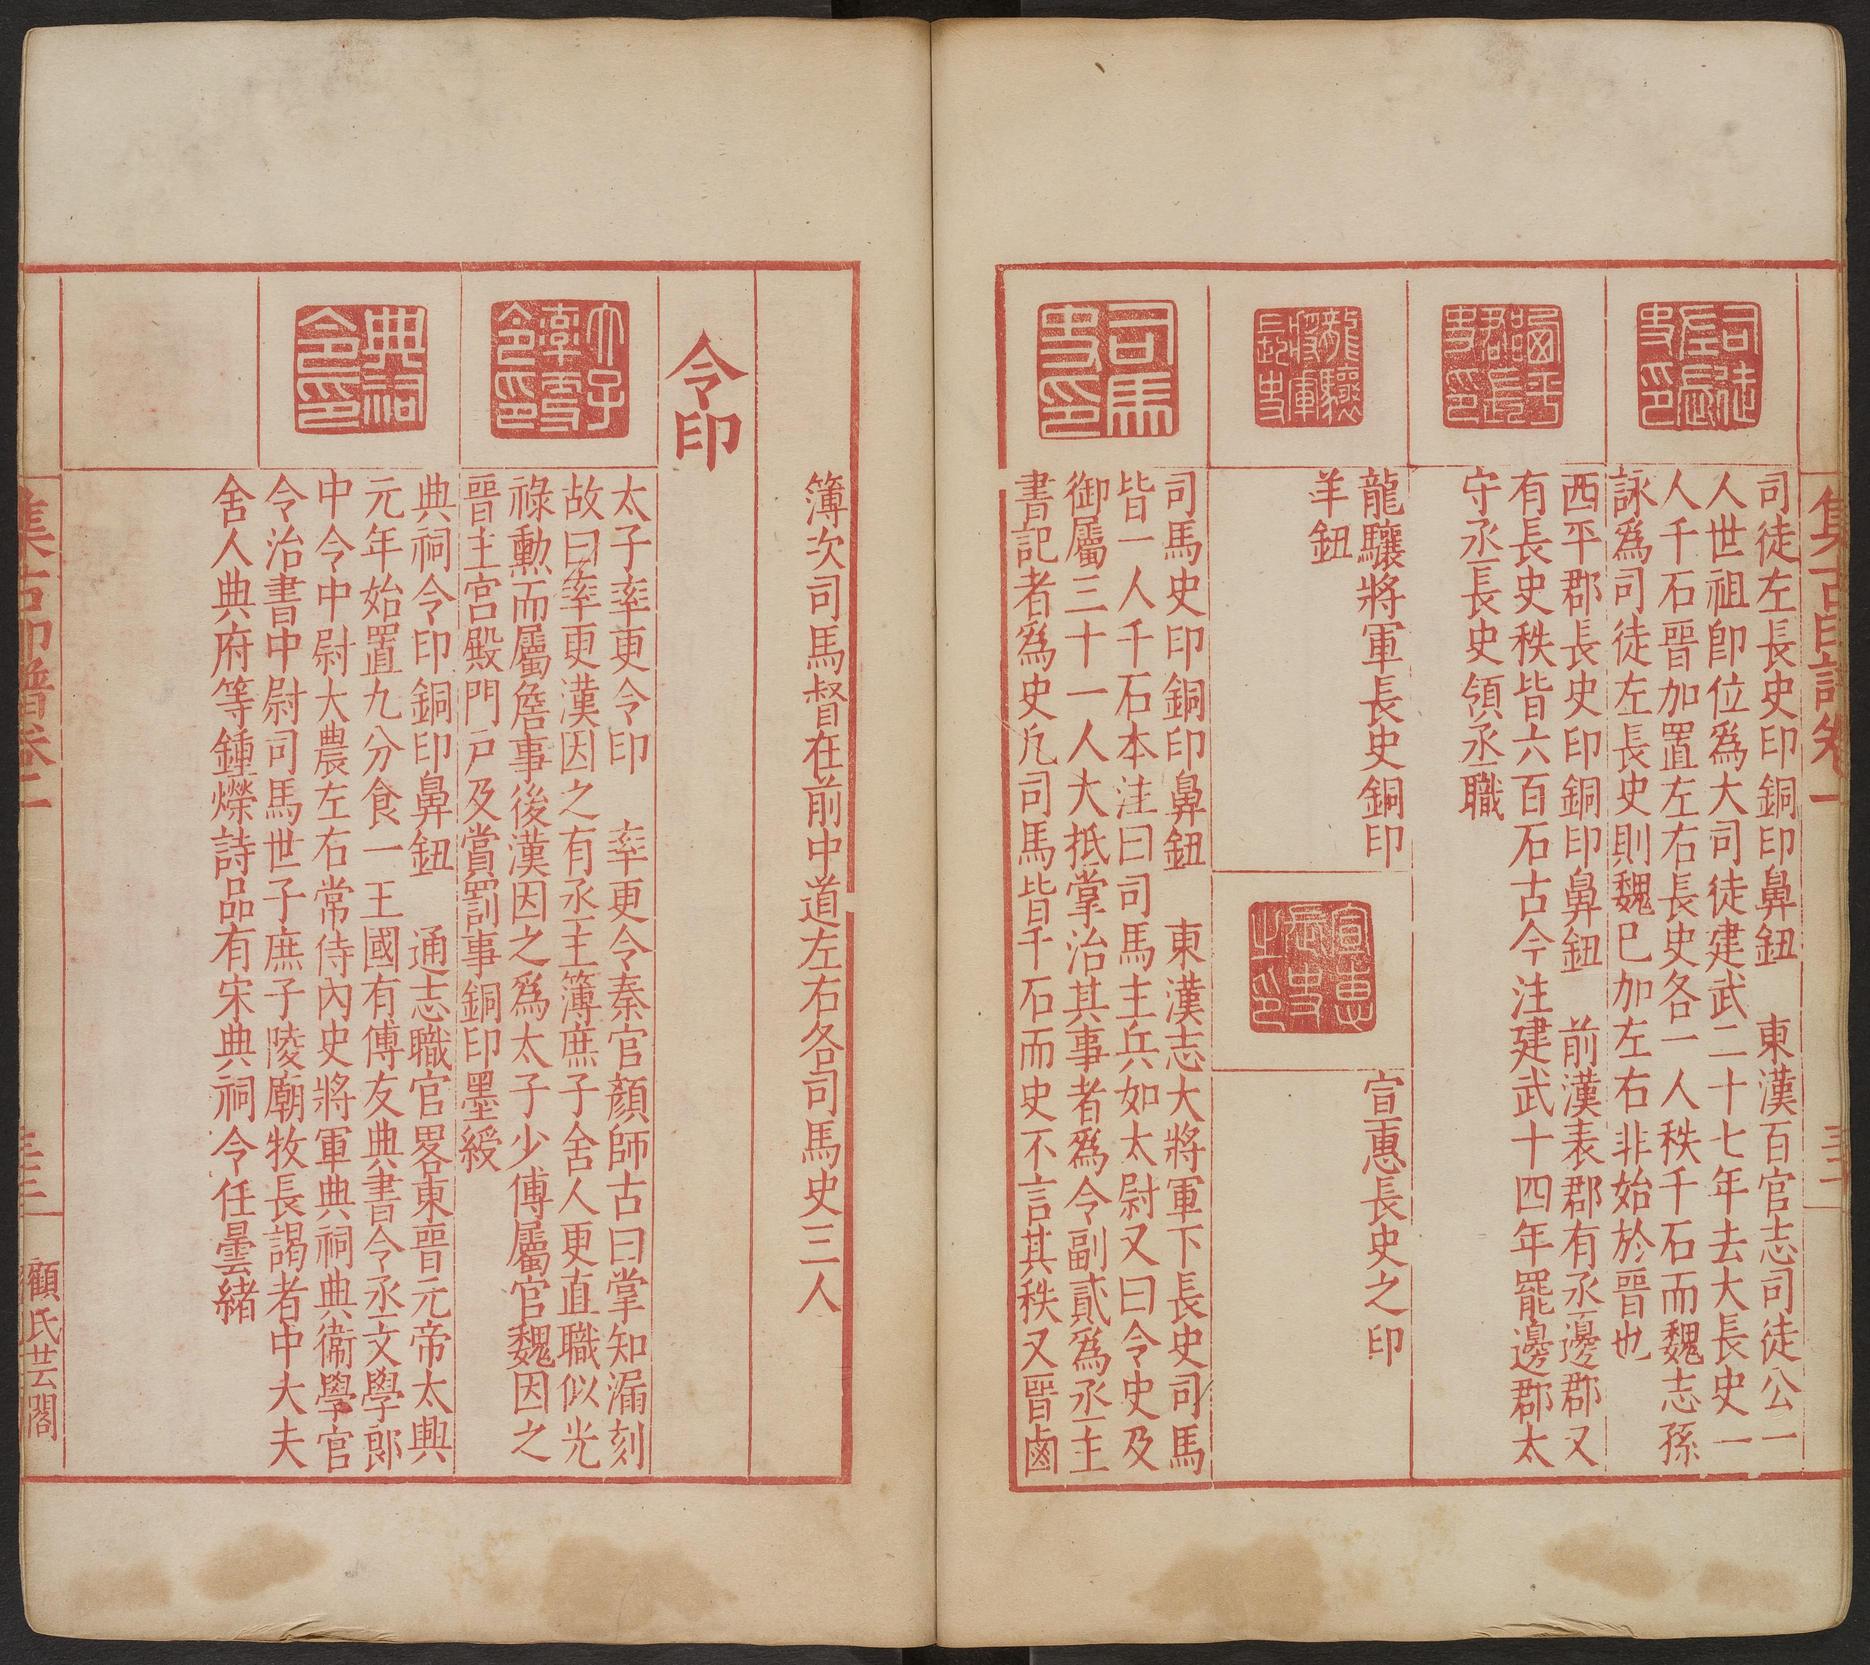 集古印譜卷二
司徒左長史印
司徒左長史印銅印鼻鈕　東漢百官志司徒公一
人世祖卽位爲大司徒建武二十七年去大長史一
人千石晉加置左右長史各一人秩千石而魏志孫
詠爲司徒左長史則魏已加左右非始於晉也
西平郡長史印
西平郡長史印銅印鼻鈕　前漢表郡有丞邊郡又
有長史秩皆六百石古今注建武十四年罷邊郡太
守丞長史領丞職
龍驤將軍長史
龍驤將軍長史銅印
羊鈕
宣惠長史之印
宣惠長史之印
司馬史印
司馬史印銅印鼻鈕　東漢志大將軍下長史司馬
皆一人千石本注曰司馬主兵如太尉又曰令史及
御屬三十一人大抵掌治其事者爲令副貳爲丞主
書記者爲史凡司馬皆千石而史不言其秩又晉鹵
簿次司馬督在前中道左右各司馬史三人
令印
太子率更令印
太子率更令印　率更令秦官顏師古曰掌知漏刻
故曰率更漢因之有丞主簿庶子舍人更直職似光
祿勳而屬詹事後漢因之爲太子少傅屬官魏因之
晉主宮殿門戶及賞罰事銅印墨綬
典祠令印
典祠令印銅印鼻鈕　通志職官畧東晉元帝太興
元年始置九分食一王國有傅友典書令丞文學郎
中令中尉大農左右常侍內史將軍典祠典衞學官
令治書中尉司馬世子庶子陵廟牧長謁者中大夫
舍人典府等鍾嶸詩品有宋典祠令任曇緒
集古印譜卷二
顧氏芸閣